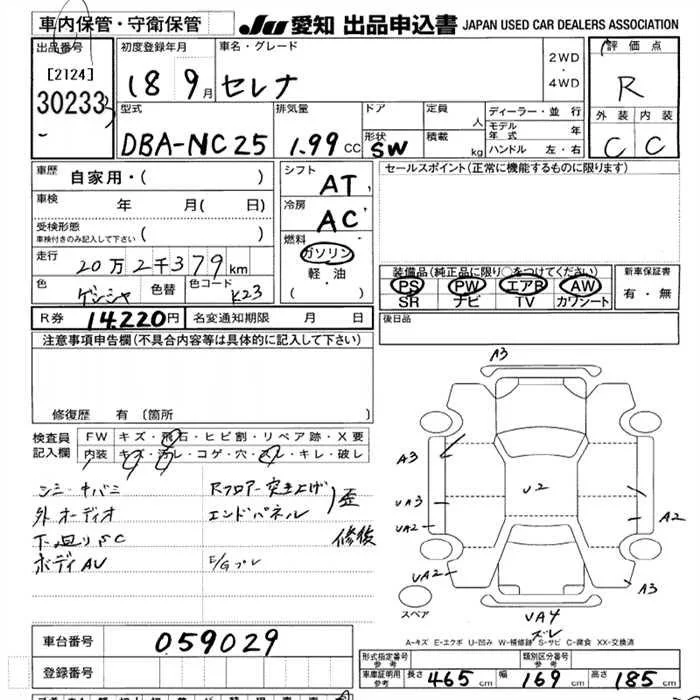 車内保管・守衛保管 JU 愛知 出品申込書 JAPAN USED CAR DEALERS ASSOCIATION
出品番号 初度登録年月 車名・グレード 2WD・4WD 評価点
[2124]
30233 18 9月 セレナ R
型式 排気量 ドア 定員 人 ディーラー・並行 外装 内装
DBA-NC25 1.99CC 形状 SW 積載 kg モデル年式 年 C C
ハンドル 左・右
車歴 自家用・( ) シフト AT セールスポイント(正常に機能するものに限ります)
車検 年 月( 日) 冷房 AC
受検形態 ( )
車検付きのみ記入して下さい
燃料 ガソリン
走行 20万2千379km 軽・油 装備品(純正品に限り○をつけてください) 新車保証書
色 色替 色コード K23 ( ・ ) PS PW エアB AW 有・無
SR ナビ TV カワシート
R券 14,220円 名変通知期限 月 日 後日品
注意事項申告欄(不具合内容等は具体的に記入して下さい)
A3
修復歴 有(箇所
検査員記入欄 FW キズ・飛石・ヒビ割・リペア跡・X要
内装 キズ・汚レ・コゲ・穴・スレ・キレ・破レ
A3
Rフロアー突き上げ 歪
U2
外オーディオ エンドパネル
UA3
修復
UA2 A2
ボディAU E/G
UA2 A3
スペア UA4
ズレ
A-キズ E-エクボ U-凹み W-補修跡 S-サビ C-腐食 XX-交換済
車台番号 059029
登録番号
形式指定番号 参考 類別区分番号 参考
車庫証明用 参考 長さ 465cm 幅 169cm 高さ 185cm